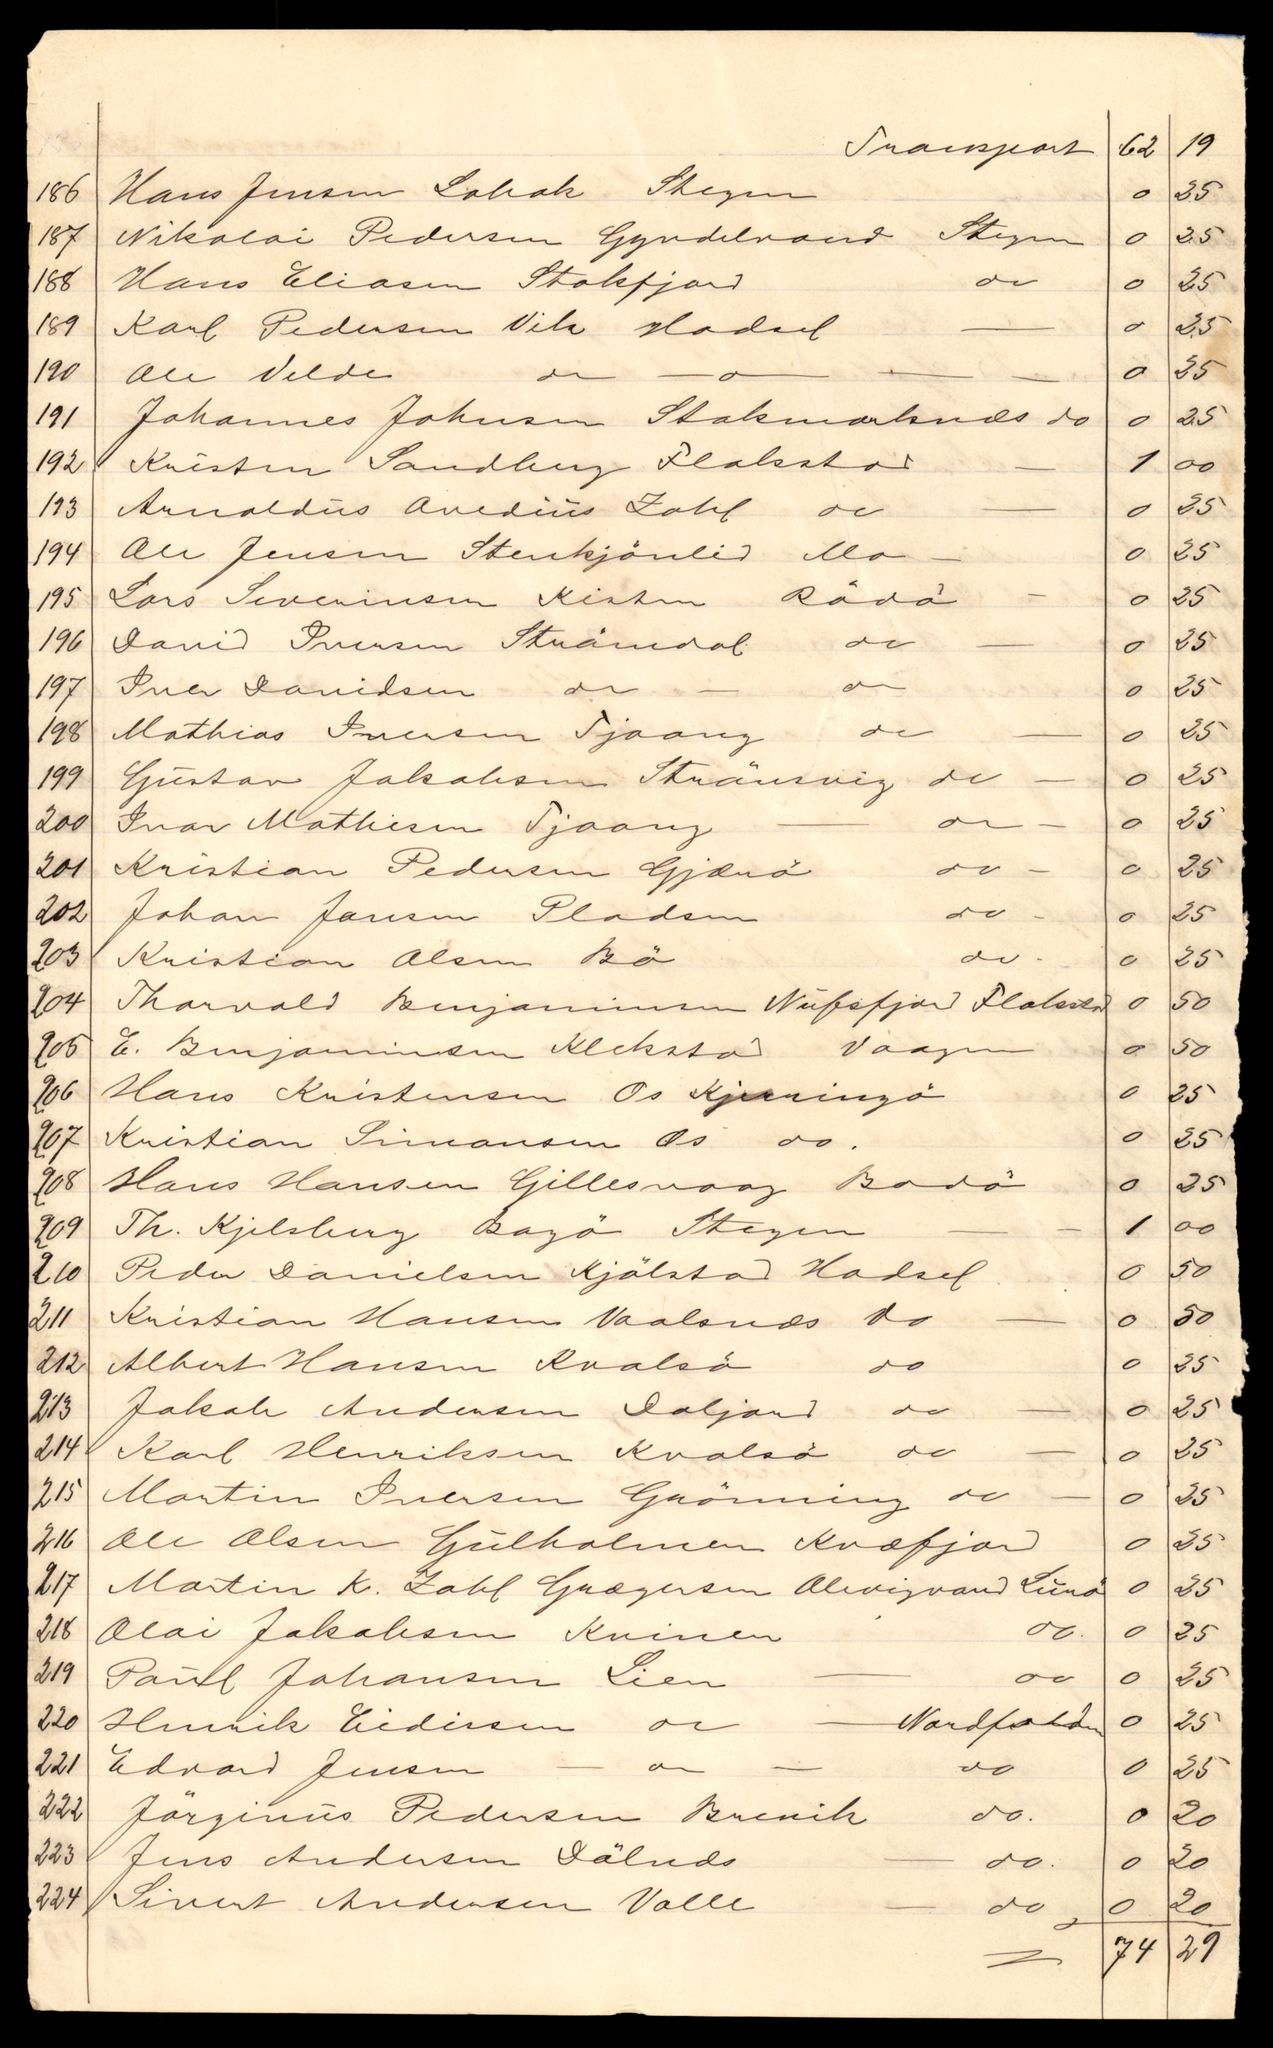 Transport 62 19
186 Hans Jensen Stegen 0 25
187 Nikolai Pedersen Stegen 0 25
188 Hans Eliasen Stokfjord do 0 25
189 Karl Pedersen Vik Hadsel — 0 25
190 Ole Velde do — o — — — 0 25
191 Johannes Johnsen Stokmarknæs do 0 25
192 Kristen Sandberg Flakstad — 1 00
193 Arnoldus Avedius Zahl do — 0 25
194 Ole Jensen Mo — 0 25
195 Lars Severinsen Rödö - 0 25
196 David Iversen Strömdal do — 0 25
197 Iver Davidsen do — do 0 25
198 Mathias Iversen Tjaang do — 0 25
199 Gustav Jakobsen Strömsvig do — 0 25
200 Ivar Mathisen Tjaang — do - 0 25
201 Kristian Pedersen Gjærö do - 0 25
202 Johan Jansen Pladsen do - 0 25
203 Kristian Olsen Bö do - 0 25
204 Thorvald Benjaminsen Nufsfjord Flakstad 0 50
205 E. Benjaminsen Klekstad Vaagen 0 50
206 Hans Kristensen Os Kjerringö 0 25
207 Kristian Simonsen Os do. 0 25
208 Hans Hansen Gillesvaag Bodö 0 25
209 Th. Kjelsberg Bogö Stegen — - 1 00
210 Peder Danielsen Kjölstad Hadsel 0 50
211 Kristian Hansen Vaalsnæs do — 0 50
212 Albert Hansen Kvalsö do 0 25
213 Jakob Andersen do — 0 25
214 Karl Henriksen Kvalsö do — 0 25
215 Martin Iversen Grönning do — 0 25
216 Ole Olsen Gulholmen Kvæfjord 0 25
217 Martin K. Zahl Grægersen Alevigvand Lurö 0 25
218 Olai Jakobsen Kvinen do. 0 25
219 Paul Johansen Lien — do 0 25
220 Henrik Eidissen do — Nordfolden 0 25
221 Edvard Jensen — do — do 0 25
222 Jörginus Pedersen Brevik do. 0 20
223 Jens Andersen — do. 0 20
224 Sivert Andersen Valle — do 0 20
74 29